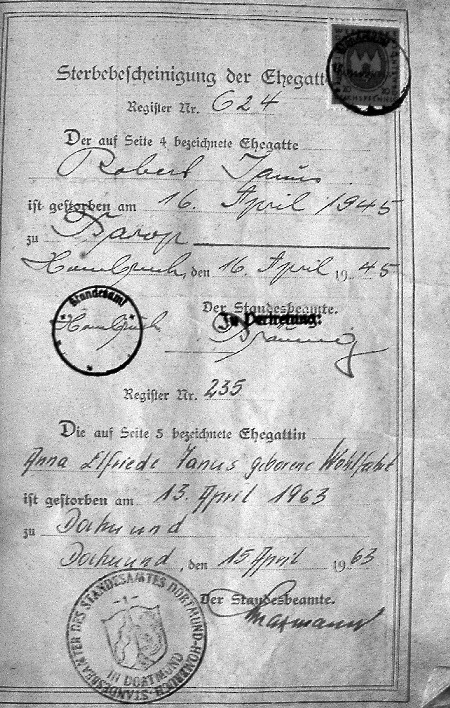 Sterbebescheinigung der Ehegatt
Register Nr. 624
Der auf Seite 4 bezeichnete Ehegatte
Robert Janus
ist gestorben am 16. April 1945
zu Barop
Hombruch, den 16. April 1945
Der Standesbeamte.
Standesamt
Hombruch
In Vertretung:
Register Nr. 235
Die auf Seite 5 bezeichnete Ehegattin
Anna Elfriede Janus geborene Wohlfahrt
ist gestorben am 13. April 1963
zu Dortmund
Dortmund, den 15 April 1963
Der Standesbeamte.
DER STANDESBEAMTE DES STANDESAMTES DORTMUND-HOMBRUCH
-1-
IN DORTMUND